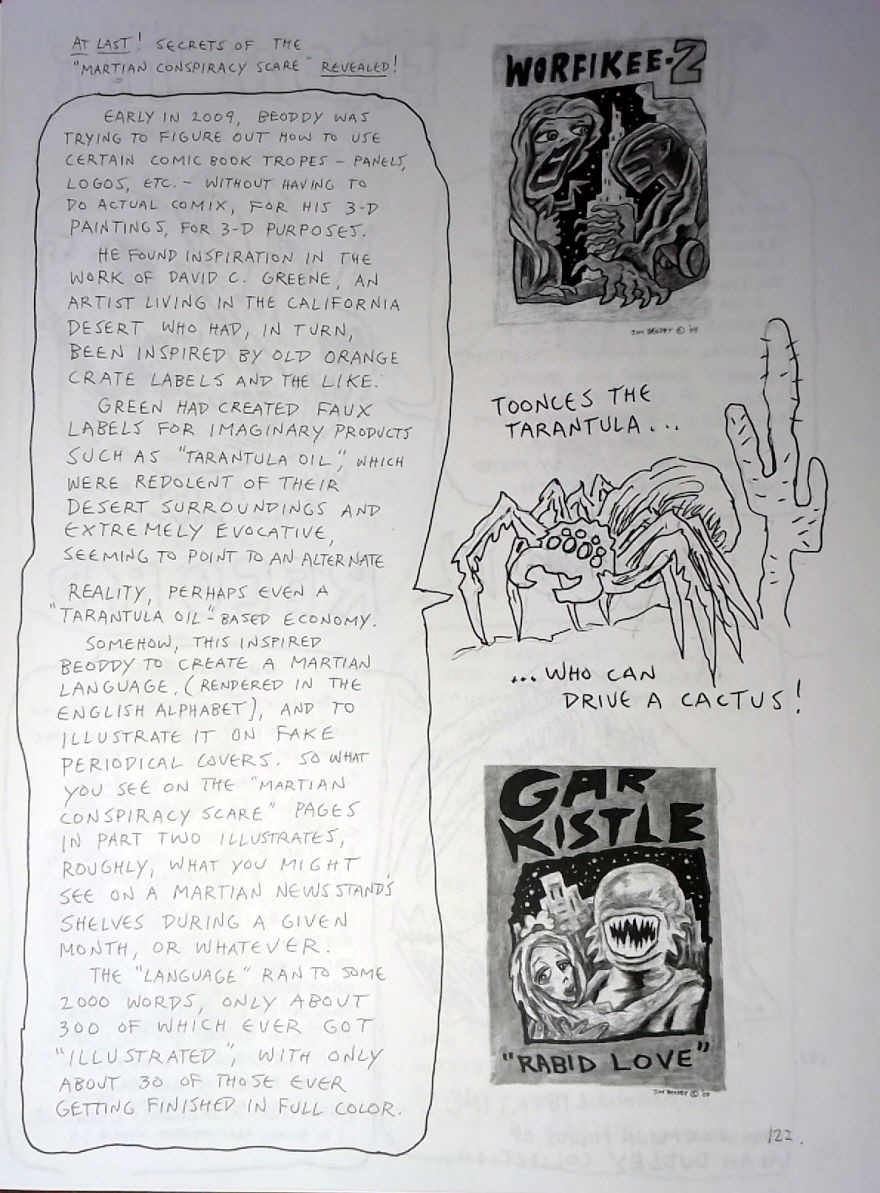 AT LAST! SECRETS OF THE
"MARTIAN CONSPIRACY SCARE" REVEALED!
EARLY IN 2009, BEODDY WAS
TRYING TO FIGURE OUT HOW TO USE
CERTAIN COMIC BOOK TROPES - PANELS,
LOGOS, ETC. - WITHOUT HAVING TO
DO ACTUAL COMIX, FOR HIS 3-D
PAINTINGS, FOR 3-D PURPOSES.
HE FOUND INSPIRATION IN THE
WORK OF DAVID C. GREENE, AN
ARTIST LIVING IN THE CALIFORNIA
DESERT WHO HAD, IN TURN,
BEEN INSPIRED BY OLD ORANGE
CRATE LABELS AND THE LIKE.
GREEN HAD CREATED FAUX
LABELS FOR IMAGINARY PRODUCTS
SUCH AS "TARANTULA OIL", WHICH
WERE REDOLENT OF THEIR
DESERT SURROUNDINGS AND
EXTREMELY EVOCATIVE,
SEEMING TO POINT TO AN ALTERNATE
REALITY, PERHAPS EVEN A
"TARANTULA OIL"-BASED ECONOMY.
SOMEHOW, THIS INSPIRED
BEODDY TO CREATE A MARTIAN
LANGUAGE, (RENDERED IN THE
ENGLISH ALPHABET), AND TO
ILLUSTRATE IT ON FAKE
PERIODICAL COVERS. SO WHAT
YOU SEE ON THE "MARTIAN
CONSPIRACY SCARE" PAGES
IN PART TWO ILLUSTRATES,
ROUGHLY, WHAT YOU MIGHT
SEE ON A MARTIAN NEWSSTAND'S
SHELVES DURING A GIVEN
MONTH, OR WHATEVER.
THE "LANGUAGE" RAN TO SOME
2000 WORDS, ONLY ABOUT
300 OF WHICH EVER GOT
"ILLUSTRATED", WITH ONLY
ABOUT 30 OF THOSE EVER
GETTING FINISHED IN FULL COLOR.
WORFIKEE-Z
JIM BEODDY © '09
TOONCES THE
TARANTULA...
...WHO CAN
DRIVE A CACTUS!
GAR
KISTLE
"RABID LOVE"
JIM BEODDY © '09
122.